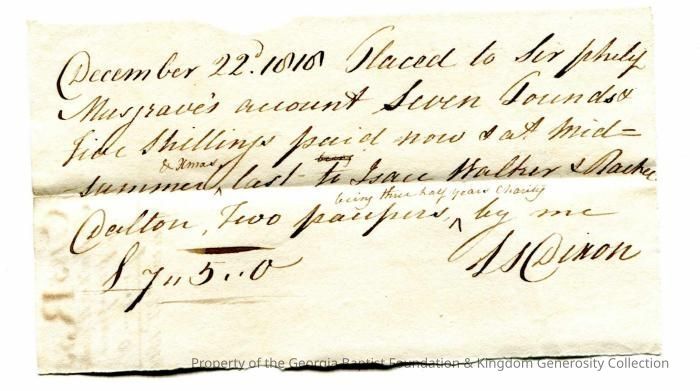 December 22d. 1818 Placed to Sir Philip
Musgrave's account Seven Pounds &
Five Shillings paid now & at Mid=
& Xmas being
-summer ^ last to Isaac Walker & Rachel
being three half years Charity
Dalton, Two paupers, ^ by me
£ 7 " 5 .. 0 Dixon
Property of the Georgia Baptist Foundation & Kingdom Generosity Collection